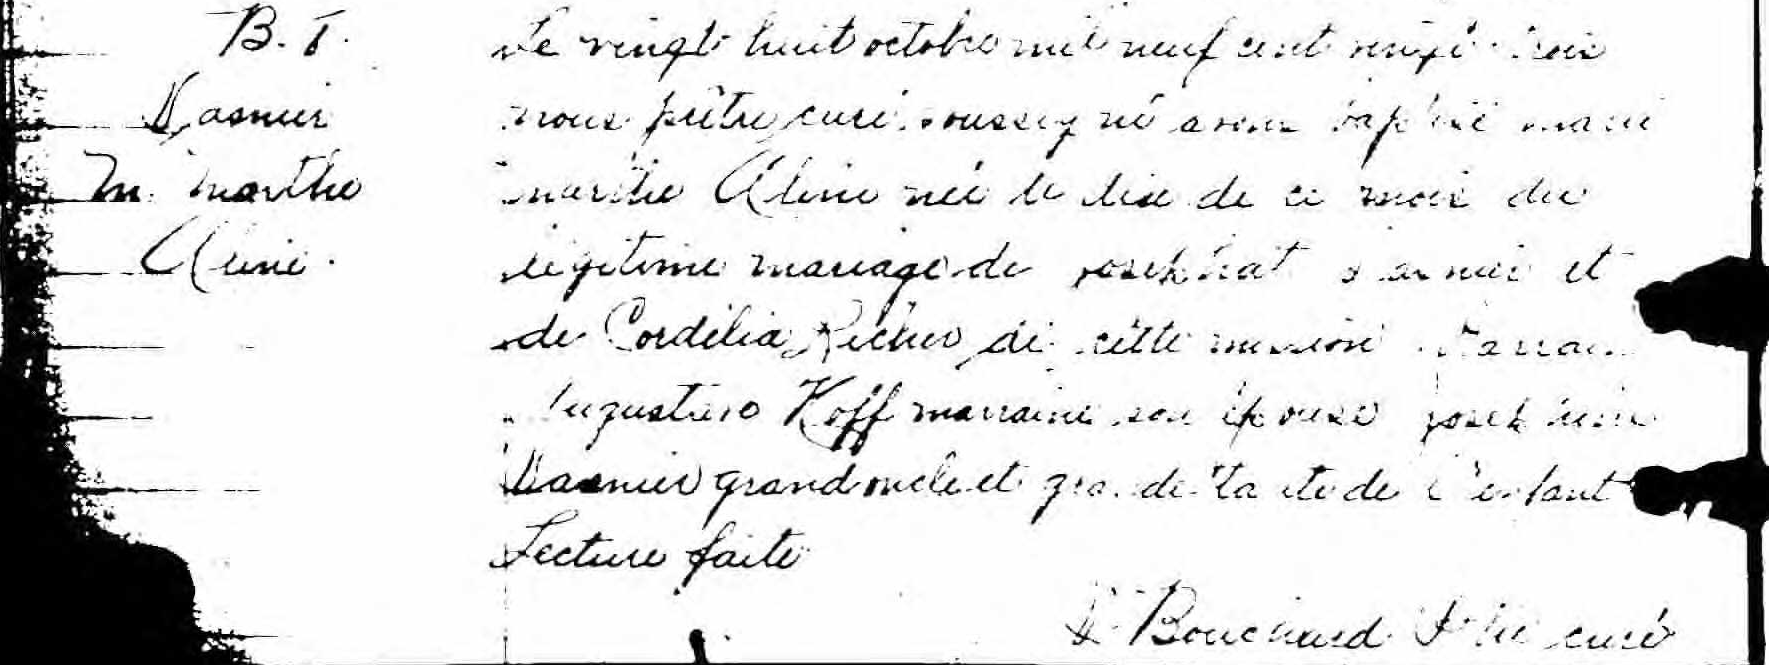 B. 7.
Vasnier
M. Marthe
Aline.
Le vingt huit octobre mil neuf cent vingt trois
nous prêtre curé soussigné avons baptisé marie
marthe Aline née le dix de ce mois du
légitime mariage de josephat Vasnier et
de Cordélia Richer de cette mission Parrain
Augustin Koff marraine son épouse josephine
Vasnier grand oncle et grande tante de l'enfant
Lecture faite
Bouchard Ptre curé